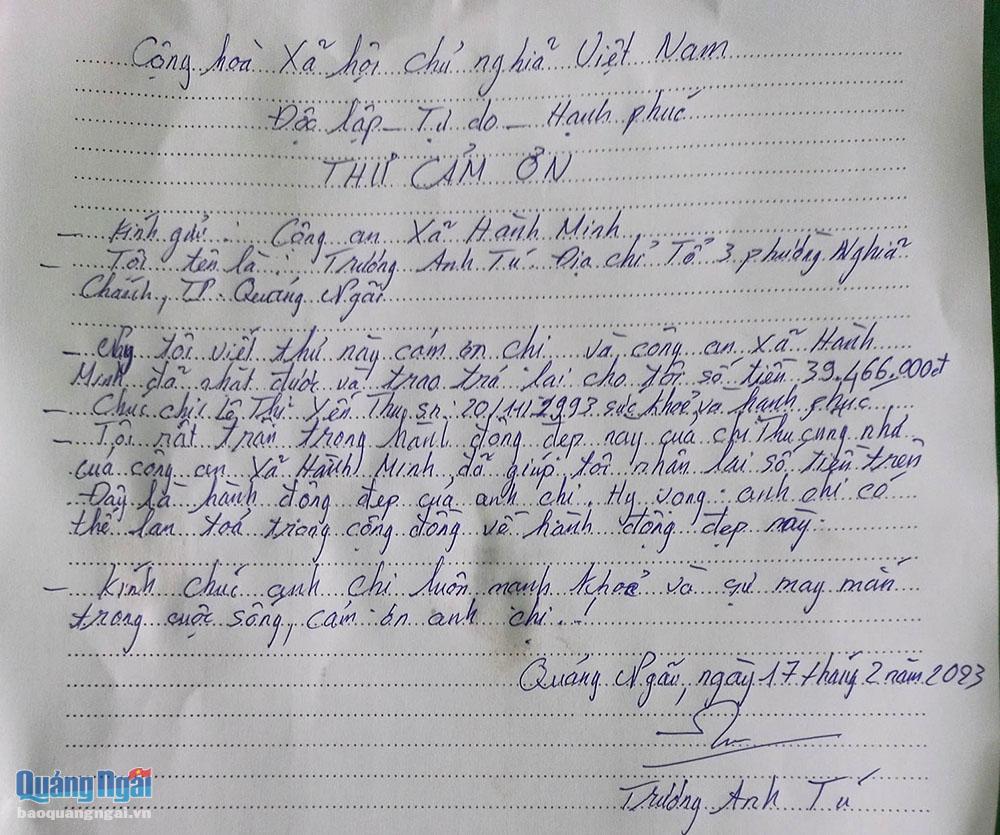 Cộng hoà Xã hội chủ nghĩa Việt Nam
Độc lập - Tự do - Hạnh phúc
THƯ CẢM ƠN
- Kính gửi : Công an Xã Hành Minh.
- Tôi tên là : Trương Anh Tú. Địa chỉ Tổ 3 phường Nghĩa
Chánh, TP. Quảng Ngãi
- Nay tôi viết thư này cám ơn chị và công an Xã Hành
Minh đã nhặt được và trao trả lại cho tôi số tiền 39.466.000đ
- Chúc chị Lê Thị Yến Thu sn: 20/11/1993 sức khoẻ và hạnh phúc
- Tôi rất trân trọng hành động đẹp nay của chị Thu cũng như
của công an Xã Hành Minh, đã giúp tôi nhận lại số tiền trên
Đây là hành động đẹp của anh chị. Hy vọng anh chị có
thể lan toả trong cộng đồng về hành động đẹp này.
- Kính chúc anh chị luôn mạnh khoẻ và sự may mắn
trong cuộc sống, cám ơn anh chị.!
Quảng Ngãi, ngày 17 tháng 2 năm 2023
Trương Anh Tú
Quảng Ngãi
baoquangngai.vn